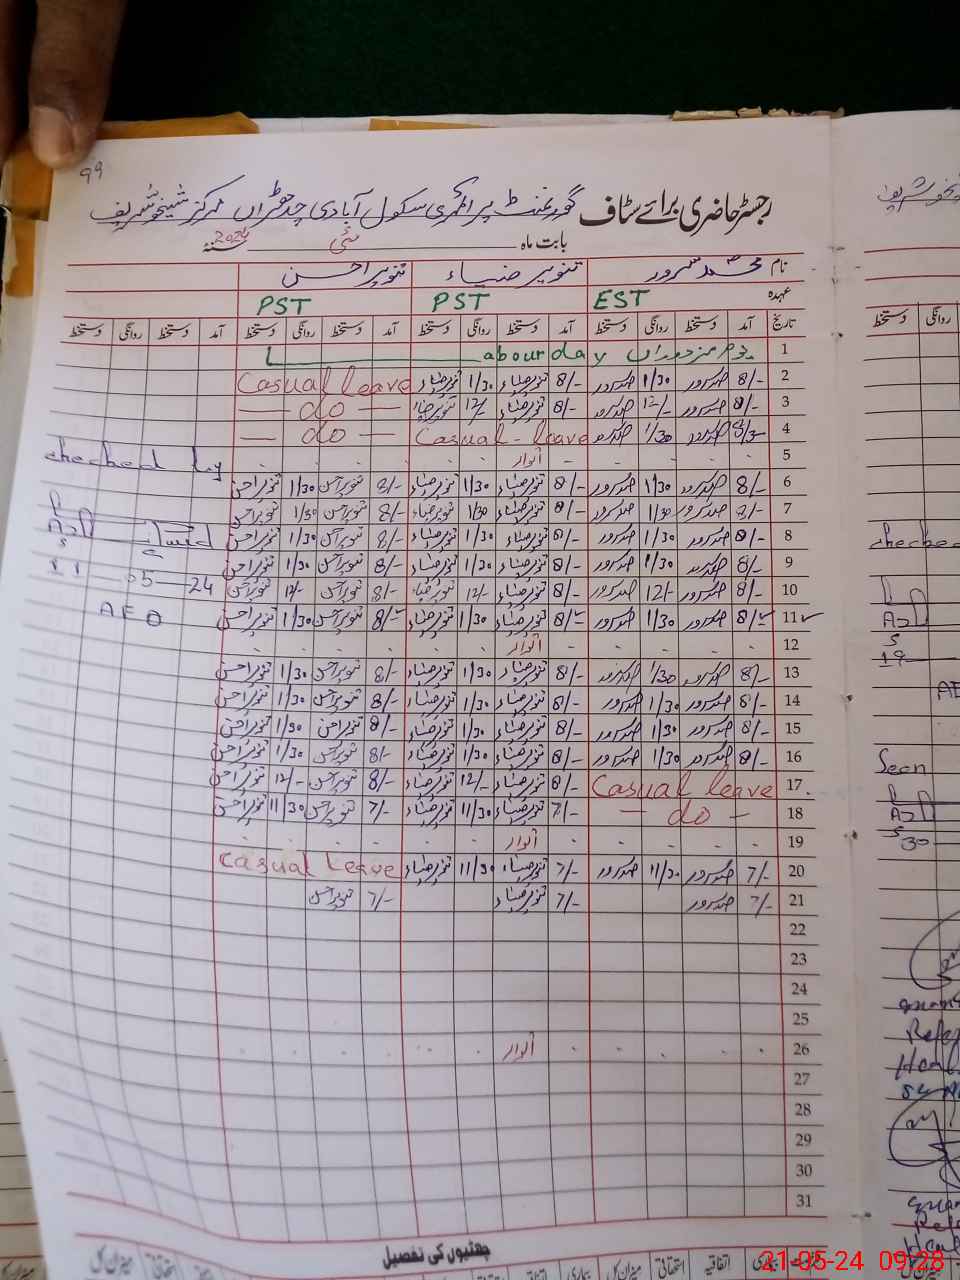 99
رجسٹر حاضری برائے سٹاف گورنمنٹ پرائمری سکول آبادی چدھڑاں مرکز شیخو شریف
بابت ماہ مئی 2024
نام محمد سرور تنویر ضیاء تنویر احسن
عہدہ EST PST PST
تاریخ آمد دستخط روانگی دستخط آمد دستخط روانگی دستخط آمد دستخط روانگی دستخط آمد دستخط روانگی دستخط
1 یوم مزدوراں Labour day
2 8/- سرور 1/30 سرور 8/- تنویر ضیاء 1/30 تنویر ضیاء Casual leave
3 8/- سرور 12/- سرور 8/- تنویر ضیاء 12/- تنویر ضیاء — do —
4 سرور 1/30 سرور Casual - leave — do —
5 اتوار
6 8/- سرور 1/30 سرور 8/- تنویر ضیاء 1/30 تنویر ضیاء 8/- تنویر احسن 1/30 تنویر احسن
7 8/- سرور 1/30 سرور 8/- تنویر ضیاء 1/30 تنویر ضیاء 8/- تنویر احسن 1/30 تنویر احسن
8 8/- سرور 1/30 سرور 8/- تنویر ضیاء 1/30 تنویر ضیاء 8/- تنویر احسن 1/30 تنویر احسن
9 8/- سرور 1/30 سرور 8/- تنویر ضیاء 1/30 تنویر ضیاء 8/- تنویر احسن 1/30 تنویر احسن
10 8/- سرور 12/- سرور 8/- تنویر ضیاء 12/- تنویر ضیاء 8/- تنویر احسن 12/- تنویر احسن
11 8/- سرور 1/30 سرور 8/- تنویر ضیاء 1/30 تنویر ضیاء 8/- تنویر احسن 1/30 تنویر احسن
12 اتوار
13 8/- سرور 1/30 سرور 8/- تنویر ضیاء 1/30 تنویر ضیاء 8/- تنویر احسن 1/30 تنویر احسن
14 8/- سرور 1/30 سرور 8/- تنویر ضیاء 1/30 تنویر ضیاء 8/- تنویر احسن 1/30 تنویر احسن
15 8/- سرور 1/30 سرور 8/- تنویر ضیاء 1/30 تنویر ضیاء 8/- تنویر احسن 1/30 تنویر احسن
16 8/- سرور 1/30 سرور 8/- تنویر ضیاء 1/30 تنویر ضیاء 8/- تنویر احسن 1/30 تنویر احسن
17 Casual leave 8/- تنویر ضیاء 12/- تنویر ضیاء 8/- تنویر احسن 12/- تنویر احسن
18 — do — 7/- تنویر ضیاء 11/30 تنویر ضیاء 7/- تنویر احسن 11/30 تنویر احسن
19 اتوار
20 7/- سرور 11/30 سرور 7/- تنویر ضیاء 11/30 تنویر ضیاء Casual Leave
21 7/- سرور 7/- تنویر ضیاء 7/- تنویر احسن
22
23
24
25
26 اتوار
27
28
29
30
31
checked by
11—05—24
AEO
چھٹیوں کی تفصیل
بیماری اتفاقیہ استحقاقی میزان کل بیماری اتفاقیہ استحقاقی میزان کل
دستخط روانگی
checked
19
Seen
30
21-05-24 09:28